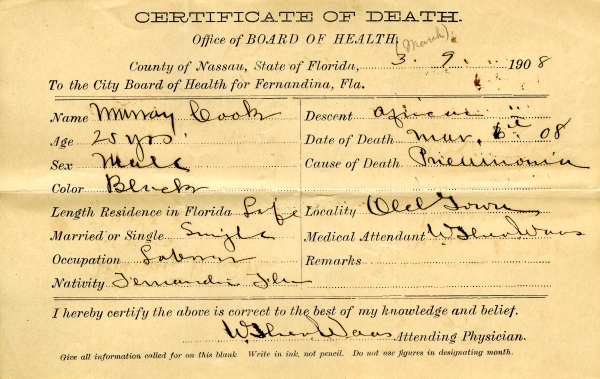 CERTIFICATE OF DEATH.
Office of BOARD OF HEALTH,
(March)
County of Nassau, State of Florida, 3. 9. 1908
To the City Board of Health for Fernandina, Fla.
Name Murray Cook
Descent African
Age 25 yrs
Date of Death Mar. 08
Sex Male
Cause of Death Pneumonia
Color Black
Length Residence in Florida Life
Locality Old Town
Married or Single Single
Medical Attendant
Occupation Laborer
Remarks
Nativity Fernandina Fla
I hereby certify the above is correct to the best of my knowledge and belief.
Attending Physician.
Give all information called for on this blank. Write in ink, not pencil. Do not use figures in designating month.